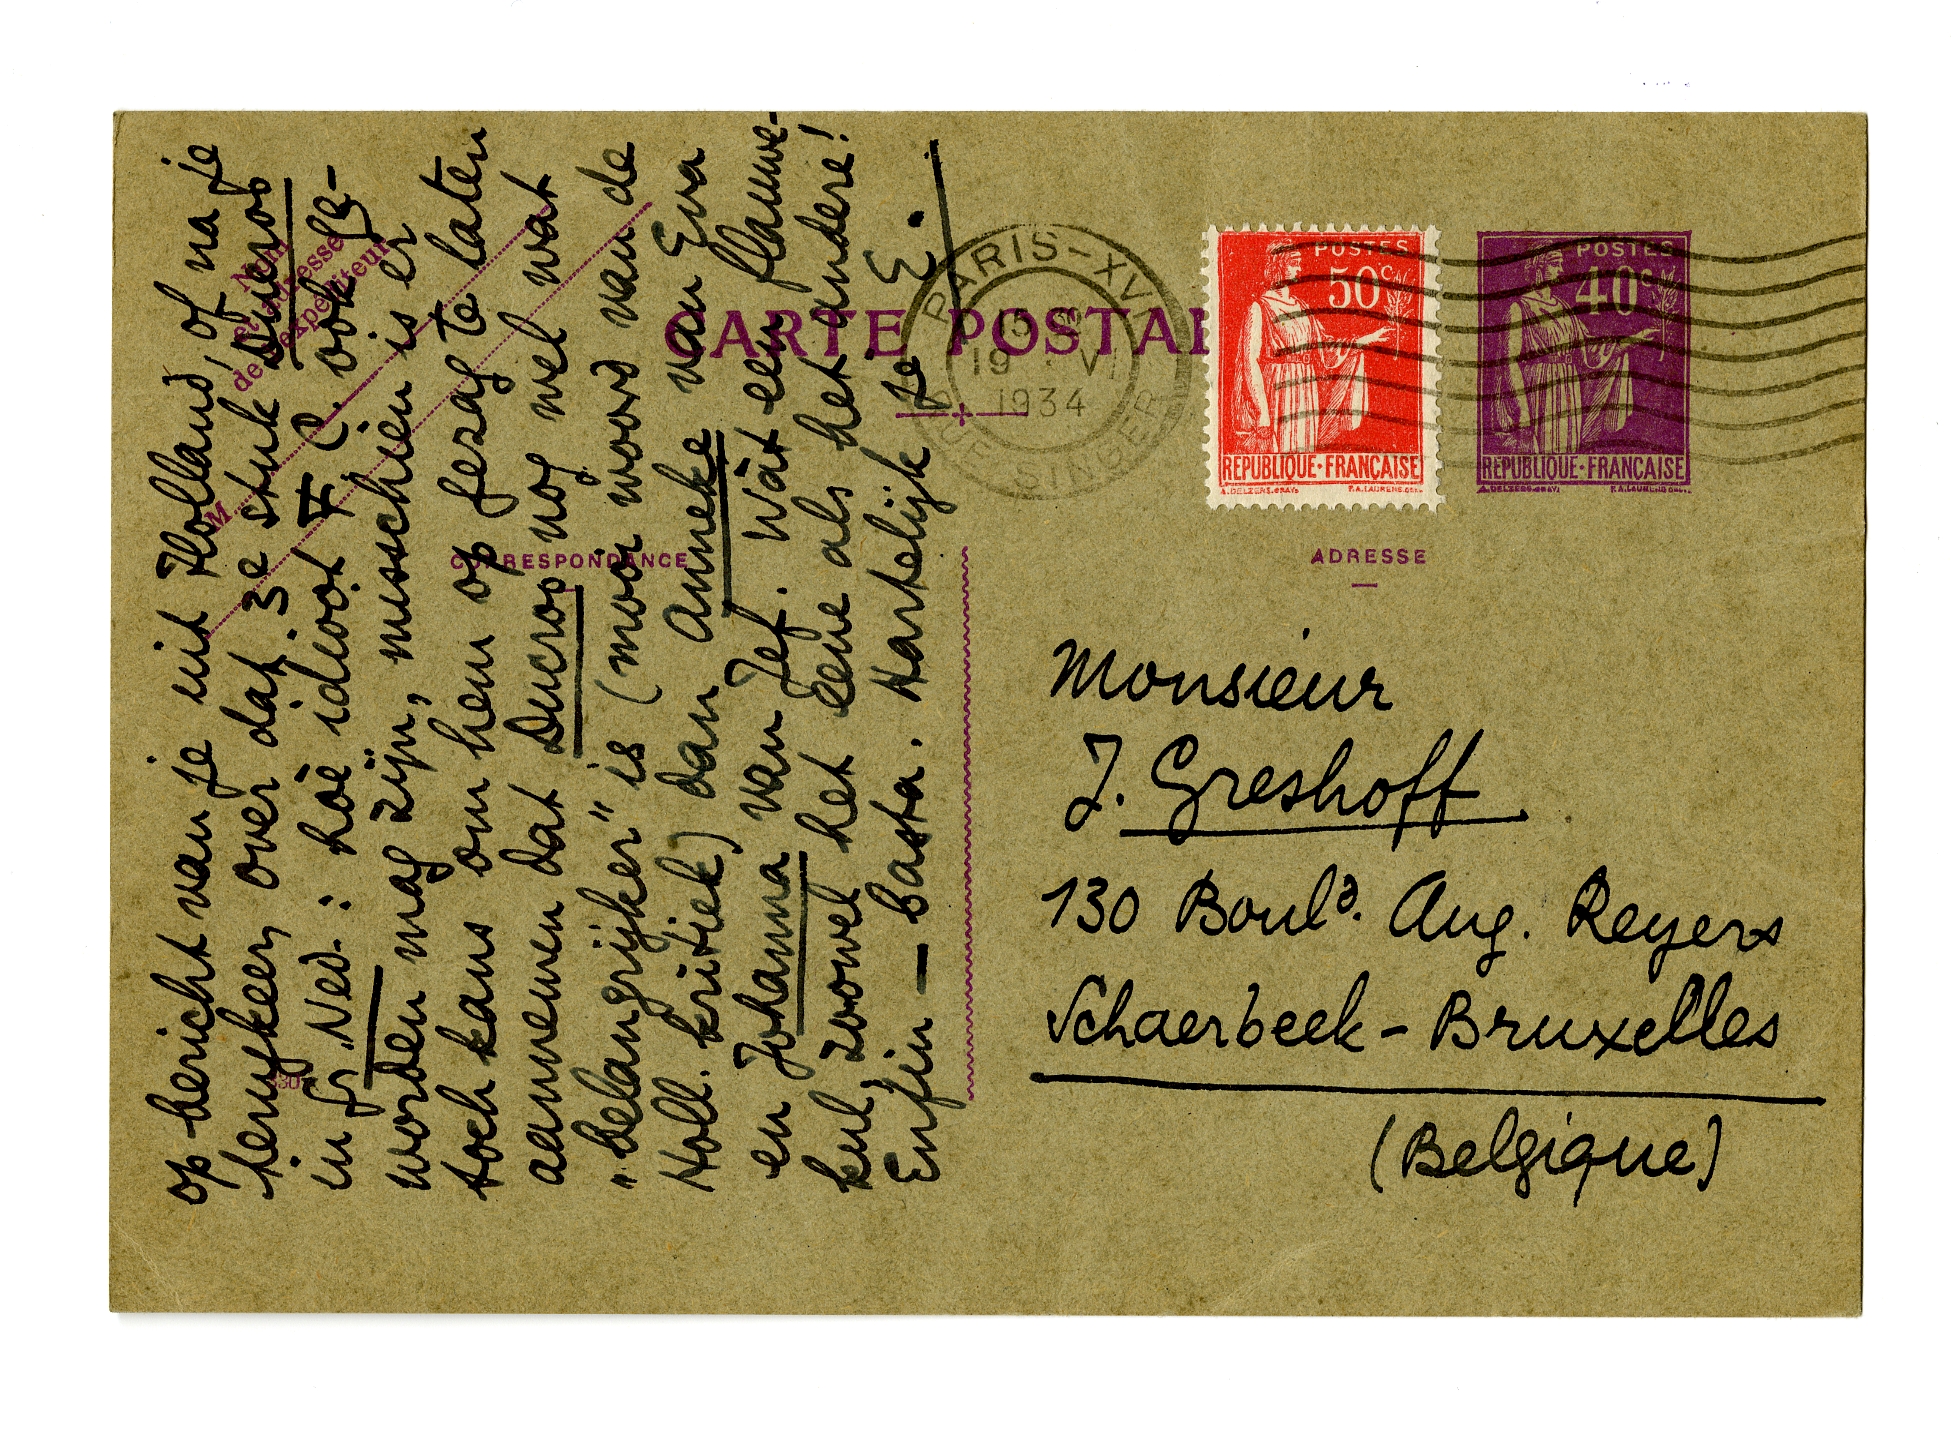 op bericht van je uit Holland, of na je
terugkeer, over dat 3e stuk Ducroo
in Gr. Ned.: hoe idioot F. C. ook ge-
worden mag zijn, misschien is er
toch kans om hem op gezag te laten
aannemen dat Ducroo nog wel wat
„belangrijker" is (mooi woord van de
Holl. kritiek) dan Anneke van Eva
en Johanna van Jef. Wàt een flauwe-
kul, zoowel het eene als het andere!
Enfin — basta. Hartelijk je E.
Nom
et adresse
de l'expéditeur
M
CORRESPONDANCE
CARTE POSTALE
PARIS-XVI
RUE SINGER
15
19 VI
1934
POSTES
50c
REPUBLIQUE·FRANÇAISE
POSTES
40c
REPUBLIQUE-FRANÇAISE
ADRESSE
Monsieur
J. Greshoff
130 Bould. Aug. Reyers
Schaerbeek-Bruxelles
(Belgique)